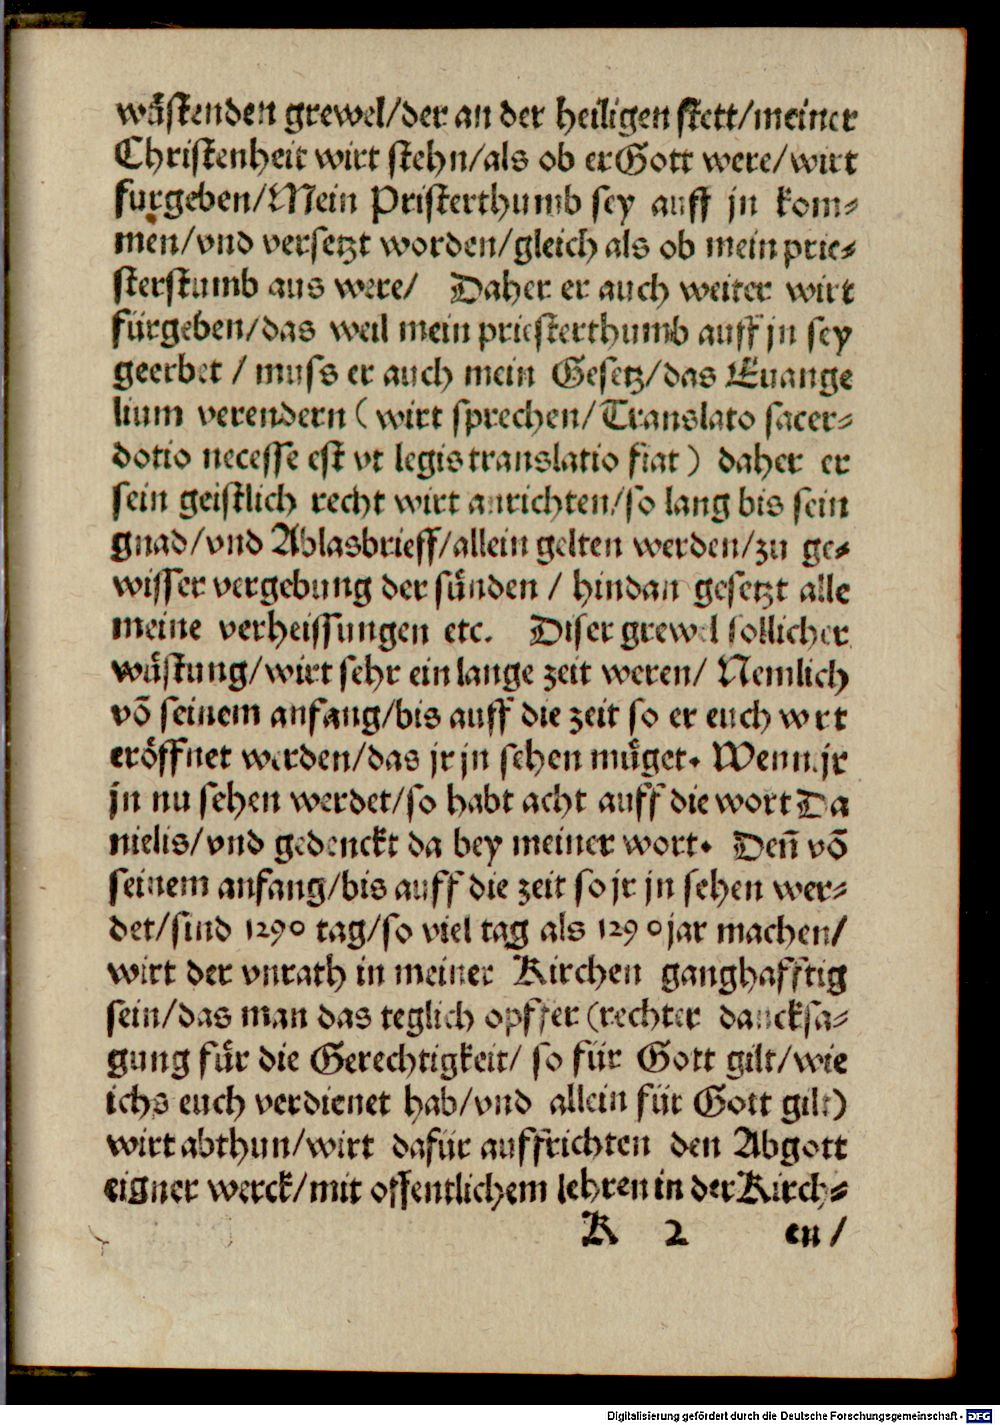 wüstenden grewel/der an der heiligen stett/meiner
Christenheit wirt stehn/als ob er Gott were/wirt
furgeben/Mein Pristerthumb sey auff jn kom-
men/vnd versetzt worden/gleich als ob mein prie-
sterstumb aus were/ Daher er auch weiter wirt
fürgeben/das weil mein priesterthumb auff jn sey
geerbet / muss er auch mein Gesetz/das Euange
lium verendern ( wirt sprechen/Translato sacer-
dotio necesse est vt legis translatio fiat ) daher er
sein geistlich recht wirt anrichten/so lang bis sein
gnad/vnd Ablasbrieff/allein gelten werden/zu ge-
wisser vergebung der sünden / hindan gesetzt alle
meine verheissungen etc. Diser grewel sollicher
wüstung/wirt sehr ein lange zeit weren/ Nemlich
võ seinem anfang/bis auff die zeit so er euch wirt
eröffnet werden/das jr jn sehen müget. Wenn jr
jn nu sehen werdet/so habt acht auff die wort Da
nielis/vnd gedenckt da bey meiner wort. Deñ võ
seinem anfang/bis auff die zeit so jr jn sehen wer-
det/sind 1290 tag/so viel tag als 1290 jar machen/
wirt der vnrath in meiner Kirchen ganghafftig
sein/das man das teglich opffer (rechter dancksa-
gung für die Gerechtigkeit/ so für Gott gilt/wie
ichs euch verdienet hab/vnd allein für Gott gilt)
wirt abthun/wirt dafür auffrichten den Abgott
eigner werck/mit offentlichem lehren in der Kirch-
K 2 en /
Digitalisierung gefördert durch die Deutsche Forschungsgemeinschaft - DFG